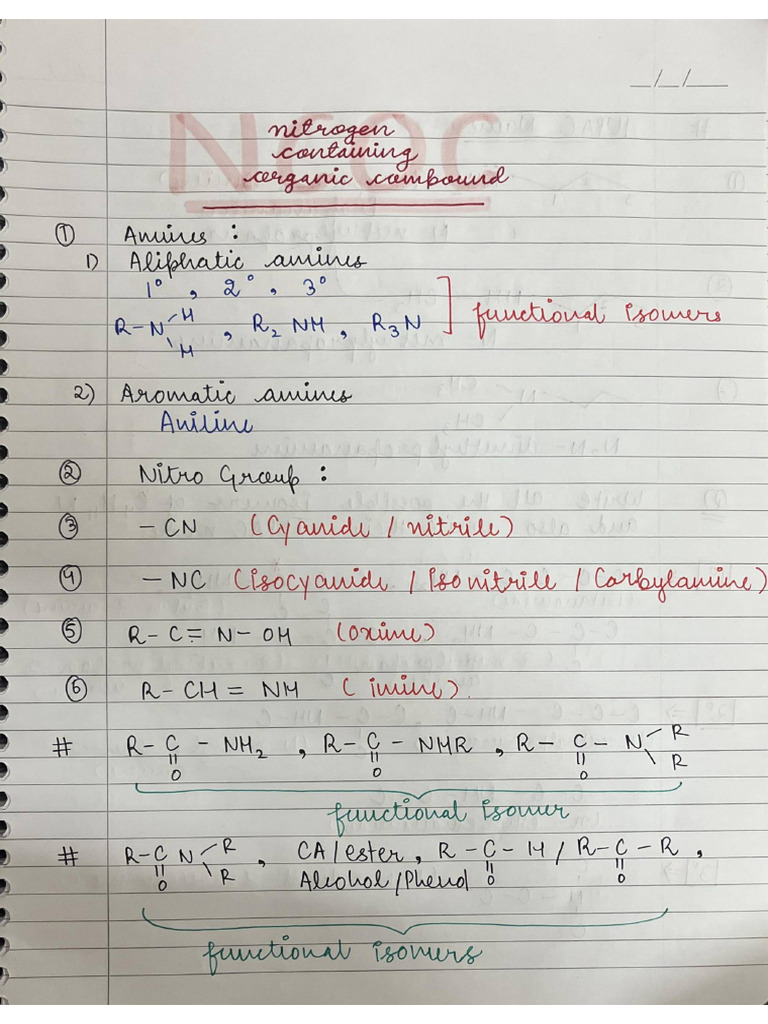 _/_/__
NCOC
nitrogen
containing
organic compound
① Amines :
1) Aliphatic amines
1° , 2° , 3°
R-N-H H , R2 NH , R3N ] functional isomers
2) Aromatic amines
Aniline
② Nitro Group :
③ - CN (Cyanide / nitrile)
④ - NC (isocyanide / Isonitrile / Carbylamine)
⑤ R- C = N- OH (oxime)
⑥ R- CH = NH (imine).
# R- C - NH2 , R- C - NHR , R- C - N R R
O O O
functional isomer
# R-C N R R , CA/ester , R - C - H / R- C - R ,
O Alcohol/Phenol O O
functional isomers